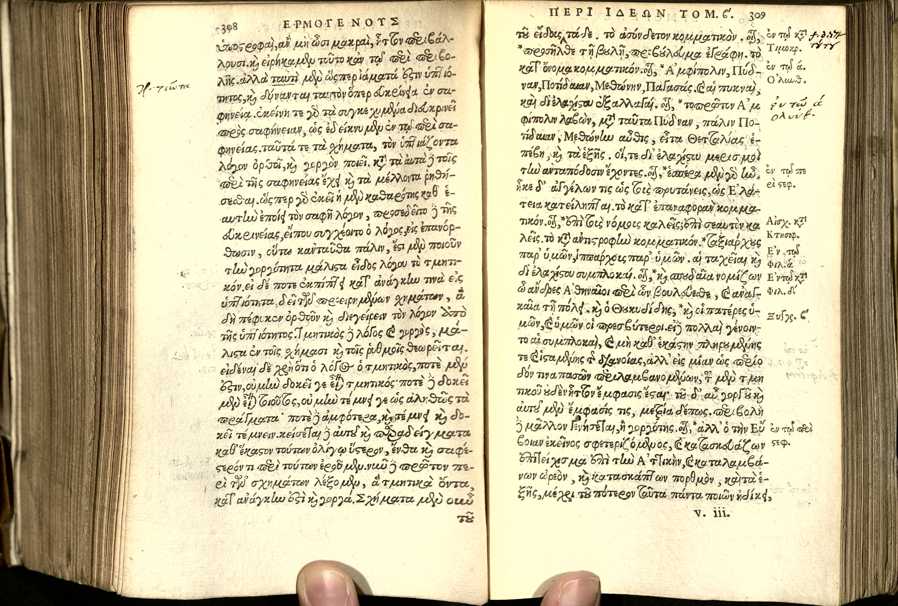 398 ΕΡΜΟΓΕΝΟΥΣ
ὑποστροφαὶ, ἂν μὴ ὦσι μακραὶ, ἧττον περιβάλ-
λουσι. καὶ εἰρήκαμεν τοῦτο κἀν τῷ περὶ περιβο-
λῆς. ἀλλὰ ταυτὶ μὲν ὥσπερ ἰάματά ἐστιν ὑπτιό-
τητος, καὶ δύναται ταὐτὸν ὅπερ εὐκρίνεια ἐν σα-
φηνείᾳ. ἐκείνη τε γὰρ τὰ συγκεχυμένα διευκρινεῖ
πρὸς σαφήνειαν, ὡς ἐδείκνυμεν ἐν τῷ περὶ σα-
φηνείας. ταῦτά τε τὰ σχήματα, τὸν ὑπτιάζοντα
λόγον ὀρθοῖ, καὶ γοργὸν ποιεῖ. κατὰ ταὐτὰ δὲ τοῖς
περὶ τῆς σαφηνείας ἔχει καὶ τὰ μέλλοντα ῥηθή-
σεσθαι. ὥσπερ γὰρ ἐκεῖ ἡ μὲν καθαρότης καθ' ἑ-
αυτὴν ἐποίει τὸν σαφῆ λόγον, προσεδεῖτο δὲ τῆς
εὐκρινείας, εἴπου συγχέοιτο ὁ λόγος, εἰς ἐπανόρ-
θωσιν, οὕτω κἀνταῦθα πάλιν, ἔστι μὲν ποιοῦν
τὴν γοργότητα μάλιστα εἶδος λόγου τὸ τμητι-
κόν. εἰ δέ ποτε ἐκπίπτει κατ' ἀνάγκην τινὰ εἰς
ὑπτιότητα, δεῖ τῶν προειρημένων σχημάτων, ἃ
δὴ πέφυκεν ὀρθοῦν καὶ διεγείρειν τὸν λόγον ἀπὸ
τῆς ὑπτιότητος. Τμητικὸς δὲ λόγος καὶ γοργὸς, μά-
λιστα ἐν τοῖς σχήμασι καὶ τοῖς ῥυθμοῖς θεωρεῖται.
εἰδέναι δὲ χρὴ ὅτι ὁ λόγος ὁ τμητικὸς, ποτὲ μέν
ἐστιν, οὐ μὴν δοκεῖ γε εἶναι τμητικὸς. ποτὲ δὲ δοκεῖ
μὲν εἶναι τοιοῦτος, οὐ μὴν τέμνει γε ὡς ἀληθῶς τὰ
πράγματα. ποτὲ δὲ ἀμφότερα, καὶ τέμνει καὶ δο-
κεῖ τέμνειν. κείσεται δὲ αὐτοῦ καὶ παραδείγματα
καθ' ἕκαστον τούτων ὀλίγῳ ὕστερον, ἔνθα καὶ σαφέ-
στερόν τι περὶ τούτων ἐροῦμεν. νυνὶ δὲ πρῶτον πε-
ρὶ τῶν σχημάτων λέξομεν, ἃ τμητικὰ ὄντα,
κατ' ἀνάγκην ἐστὶ καὶ γοργά. Σχήματα μὲν οὖν
τοῦ
ΠΕΡΙ ΙΔΕΩΝ ΤΟΜ. β. 309
τοῦ εἴδους, τάδε. τὸ ἀσύνδετον κομματικόν. οἷον,
προσῆλθε τῇ βουλῇ, προβούλευμα ἐγράφη. τὸ
κατ' ὄνομα κομματικόν. οἷον, Ἀμφίπολιν, Πύδ-
ναν, Ποτίδαιαν, Μεθώνην, Παγασάς. Καὶ πυκναὶ,
καὶ δι' ἐλαχίστου ἐξαλλαγαί. οἷον, τὸ πρῶτον Ἀμ-
φίπολιν λαβὼν, μετὰ ταῦτα Πύδναν, πάλιν Πο-
τίδαιαν, Μεθώνην αὖθις, εἶτα Θετταλίας ἐ-
πέβη, καὶ τὰ ἑξῆς. οἵ τε δι' ἐλαχίστου μερισμοὶ
τὴν ἀνταπόδοσιν ἔχοντες. οἷον, ἑσπέρα μὲν γὰρ ἦν,
ἧκε δ' ἀγγέλων τις ὡς τοὺς πρυτάνεις, ὡς Ἐλά-
τεια κατείληπται. τὸ κατ' ἐπαναφορὰν κομμα-
τικόν. οἷον, ἐπὶ τοὺς νόμους καλεῖς; ἐπὶ σεαυτὸν κα-
λεῖς. τὸ κατ' ἀντιστροφὴν κομματικόν. ταξιάρχους
παρ' ὑμῶν, ἱππάρχους παρ' ὑμῶν. αἱ ταχεῖαι καὶ
δι' ἐλαχίστου συμπλοκαί. οἷον, καὶ σπουδαῖα νομίζων
ὦ ἄνδρες Ἀθηναῖοι περὶ ὧν βουλεύεσθε, καὶ ἀναγ-
καῖα τῇ πόλει. καὶ ὁ Θουκυδίδης, καὶ οἱ πατέρες ὑ-
μῶν, καὶ ὑμῶν οἱ πρεσβύτεροι. εἰ δὲ πολλαὶ γένοιν-
το αἱ συμπλοκαὶ, καὶ μὴ καθ' ἑκάστην πληρουμένης
τε καὶ ἱσταμένης τῆς διανοίας, ἀλλ' εἰς μίαν ὡς περίο
δόν τινα πασῶν περιλαμβανομένων, τοῦ μὲν τμη
τικοῦ οὐδὲν ἧττον ἔμφασις ἔσται. τοῦ δ' αὖ γοργοῦ καὶ
αὐτοῦ μὲν ἔμφασίς τις, μετρία δέ πως. περιβολὴ
δὲ μᾶλλον γενήσεται, ἢ γοργότης. οἷον, ἀλλ' ὁ τὴν Εὔ
βοιαν ἐκεῖνος σφετεριζόμενος, καὶ κατασκευάζων
ἐπιτείχισμα ἐπὶ τὴν Ἀττικὴν, καὶ καταλαμβά-
νων ὠρεὸν, καὶ κατασκάπτων πορθμὸν, καὶ τὰ ἑ-
ξῆς, μέχρι τοῦ πότερον ταῦτα πάντα ποιῶν ἠδίκει,
v. iii.
ἐν τῷ κατὰ
Τιμοκρ.
ἐν τῷ ά.
Ὀλυνθ.
ἐν τῷ ά
ὀλυνθ.
ἐν τῷ πε
ρὶ στεφ.
Αἰσχ. κατὰ
Κτησιφ.
Ἐν τῷ
Φιλ. ά.
Ἐν τῷ κατὰ
Φιλ. δ'.
Ξυγγ. β'.
ἐν τῷ περὶ
στεφ.